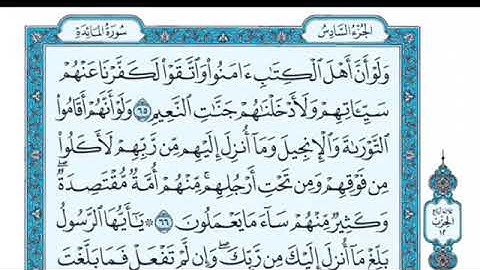 سورة المائدة
الجزء السادس
ولو أن أهل الكتب ءامنوا واتقوا لكفرنا عنهم
سيـاتهم ولأدخلنهم جنت النعيم ٦٥ ولو أنهم أقاموا
التورىة والإنجيل وما أنزل إليهم من ربهم لأكلوا
من فوقهم ومن تحت أرجلهم منهم أمة مقتصدة
وكثير منهم ساء ما يعملون ٦٦ يأيها الرسول
بلغ ما أنزل إليك من ربك وإن لم تفعل فما بلغت